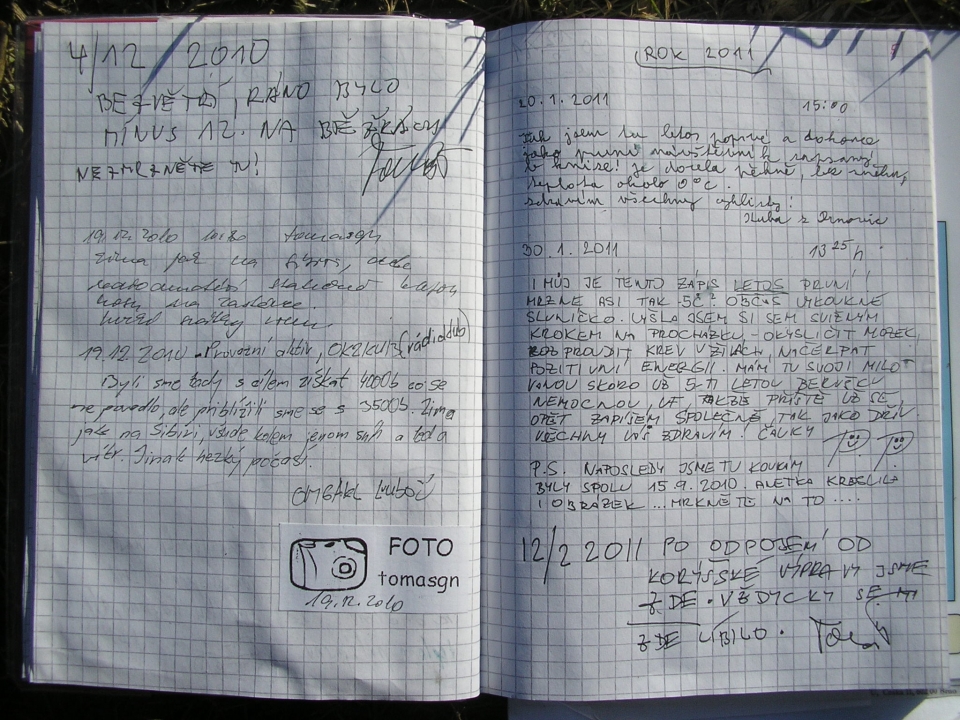 4/12 2010
BEZVĚTŘÍ, RÁNO BYLO
MÍNUS 12. NA BĚŽKÁCH
NEZMRZNĚTE TU!
19.12.2010 tomasgn
zima jak na Sibiři,
19.12.2010 - Provozní aktiv, OK2KUB (rádioklub)
Byli sme tady s cílem získat 4000b co se
ne povedlo, ale přiblížili sme se s 3500b. Zima
jak na Sibiři, všude kolem jenom sníh a led a
vítr. Jinak hezký počasí.
Luboš
FOTO
tomasgn
19.12.2010
ROK 2011
20.1.2011 15:00
Tak jsem tu letos poprvé a dokonce
jako první návštěvník zapsaný
v knize! Je docela pěkně, bez sněhu,
teplota okolo 0°C.
Zdravím všechny cyklisty!
Kuba z Drnovic
30.1.2011 13 25 h
I MŮJ JE TENTO ZÁPIS LETOS PRVNÍ!
MRZNE ASI TAK -5°C. OBČAS VYKOUKNE
SLUNÍČKO. VYŠLA JSEM SI SEM SVIŽNÝM
KROKEM NA PROCHÁZKU - OKYSLIČIT MOZEK,
ROZPROUDIT KREV V ŽILÁCH, NAČERPAT
POZITIVNÍ ENERGII. MÁM TU SVOJI MILO
VANOU SKORO UŽ 5-TI LETOU BERUŠKU
NEMOCNOU, TAKŽE PŘÍŠTĚ UŽ SE
OPĚT ZAPÍŠEM SPOLEČNĚ, TAK JAKO DŘÍV.
VŠECHNY VÁS ZDRAVÍM. ČAUKY
P.S. NAPOSLEDY JSME TU KOUKÁM
BYLY SPOLU 15.9.2010. ANETKA KRESLILA
I OBRÁZEK ... MRKNĚTE NA TO ....
12/2 2011 PO ODPOJENÍ OD
VÝPRAVY JSME
ZDE. VŽDYCKY SE MI
ZDE LÍBILO.